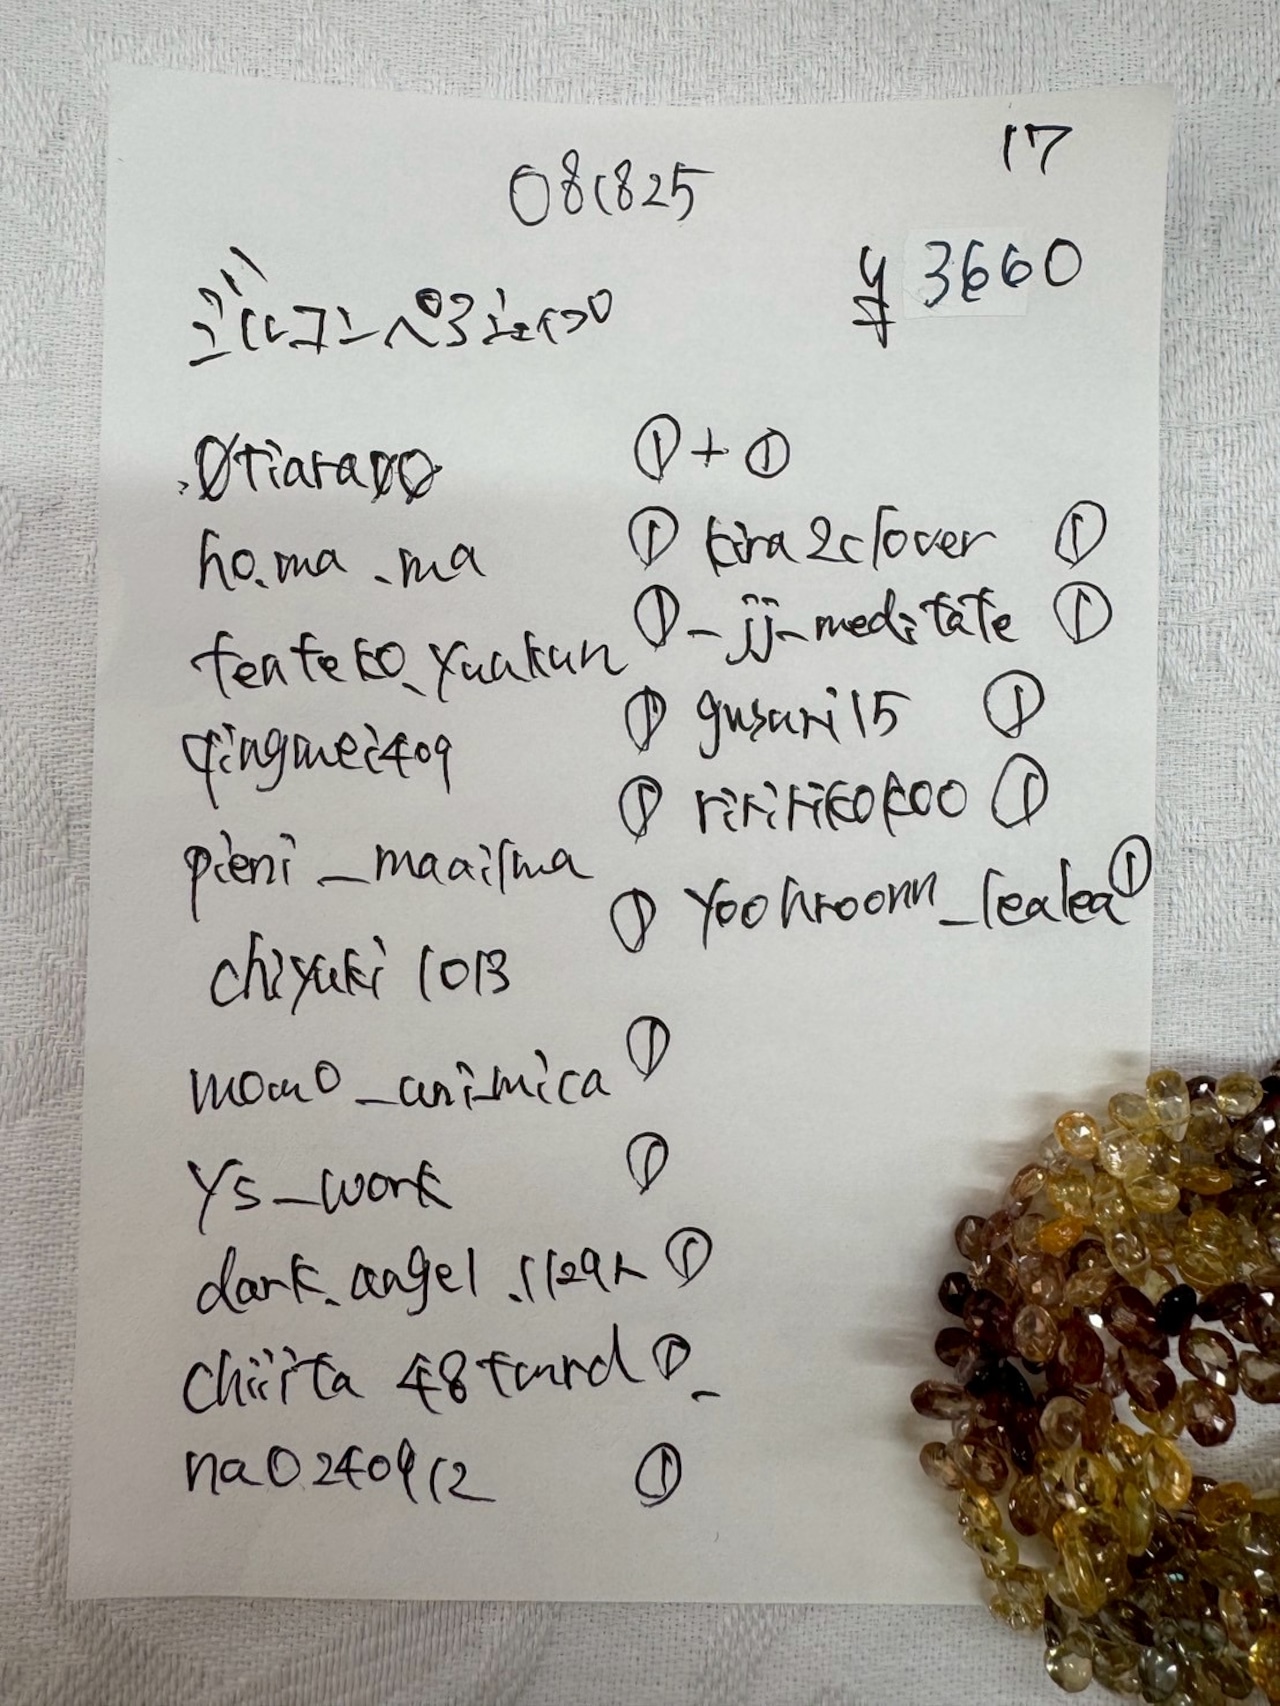 17
081825
¥3660
ジルコンペアシェイプ
0tiara00 ① + ①
ho.ma_.ma ① kira2clover ①
teateko_yuukun ① _jj_meditate ①
qingmei409 ① gusuri15 ①
pieni_maailma ① riririkokoo ①
chiyuki1013 ① yoohroonn_lealea ①
momo_animica ①
ys_work ①
dark.angel ①
chiiita 48 ①
na0240912 ①